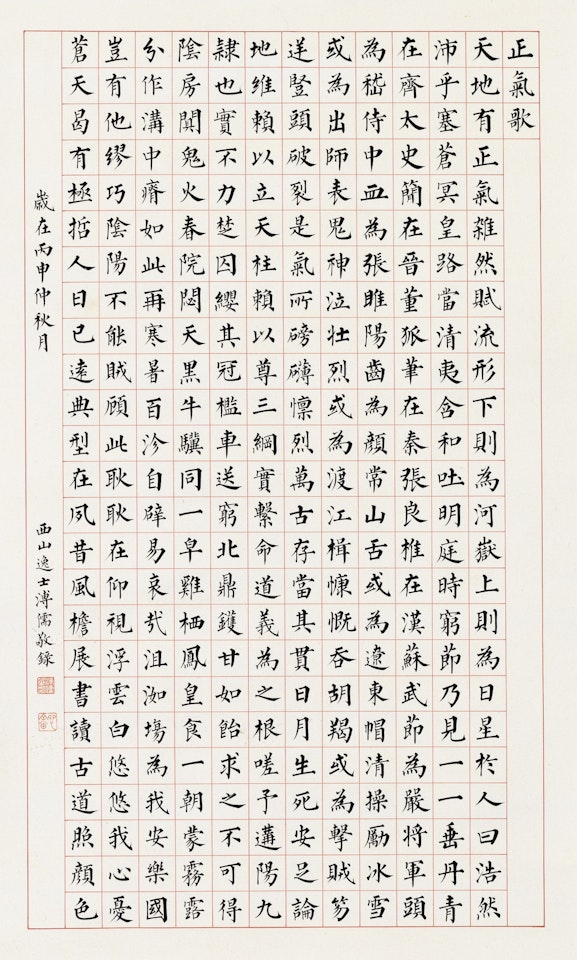 正氣歌
天地有正氣雜然賦流形下則為河嶽上則為日星於人曰浩然
沛乎塞蒼冥皇路當清夷含和吐明庭時窮節乃見一一垂丹青
在齊太史簡在晉董狐筆在秦張良椎在漢蘇武節為嚴將軍頭
為嵇侍中血為張睢陽齒為顏常山舌或為遼東帽清操勵冰雪
或為出師表鬼神泣壯烈或為渡江楫慷慨吞胡羯或為擊賊笏
逆豎頭破裂是氣所磅礴懍烈萬古存當其貫日月生死安足論
地維賴以立天柱賴以尊三綱實繫命道義為之根嗟予遘陽九
隸也實不力楚囚纓其冠檻車送窮北鼎鑊甘如飴求之不可得
陰房闃鬼火春院閟天黑牛驥同一皁雞栖鳳皇食一朝蒙霧露
分作溝中瘠如此再寒暑百沴自辟易哀哉沮洳場為我安樂國
豈有他繆巧陰陽不能賊顧此耿耿在仰視浮雲白悠悠我心憂
蒼天曷有極哲人日已遠典型在夙昔風檐展書讀古道照顏色
歲在丙申仲秋月
西山逸士溥儒敬錄